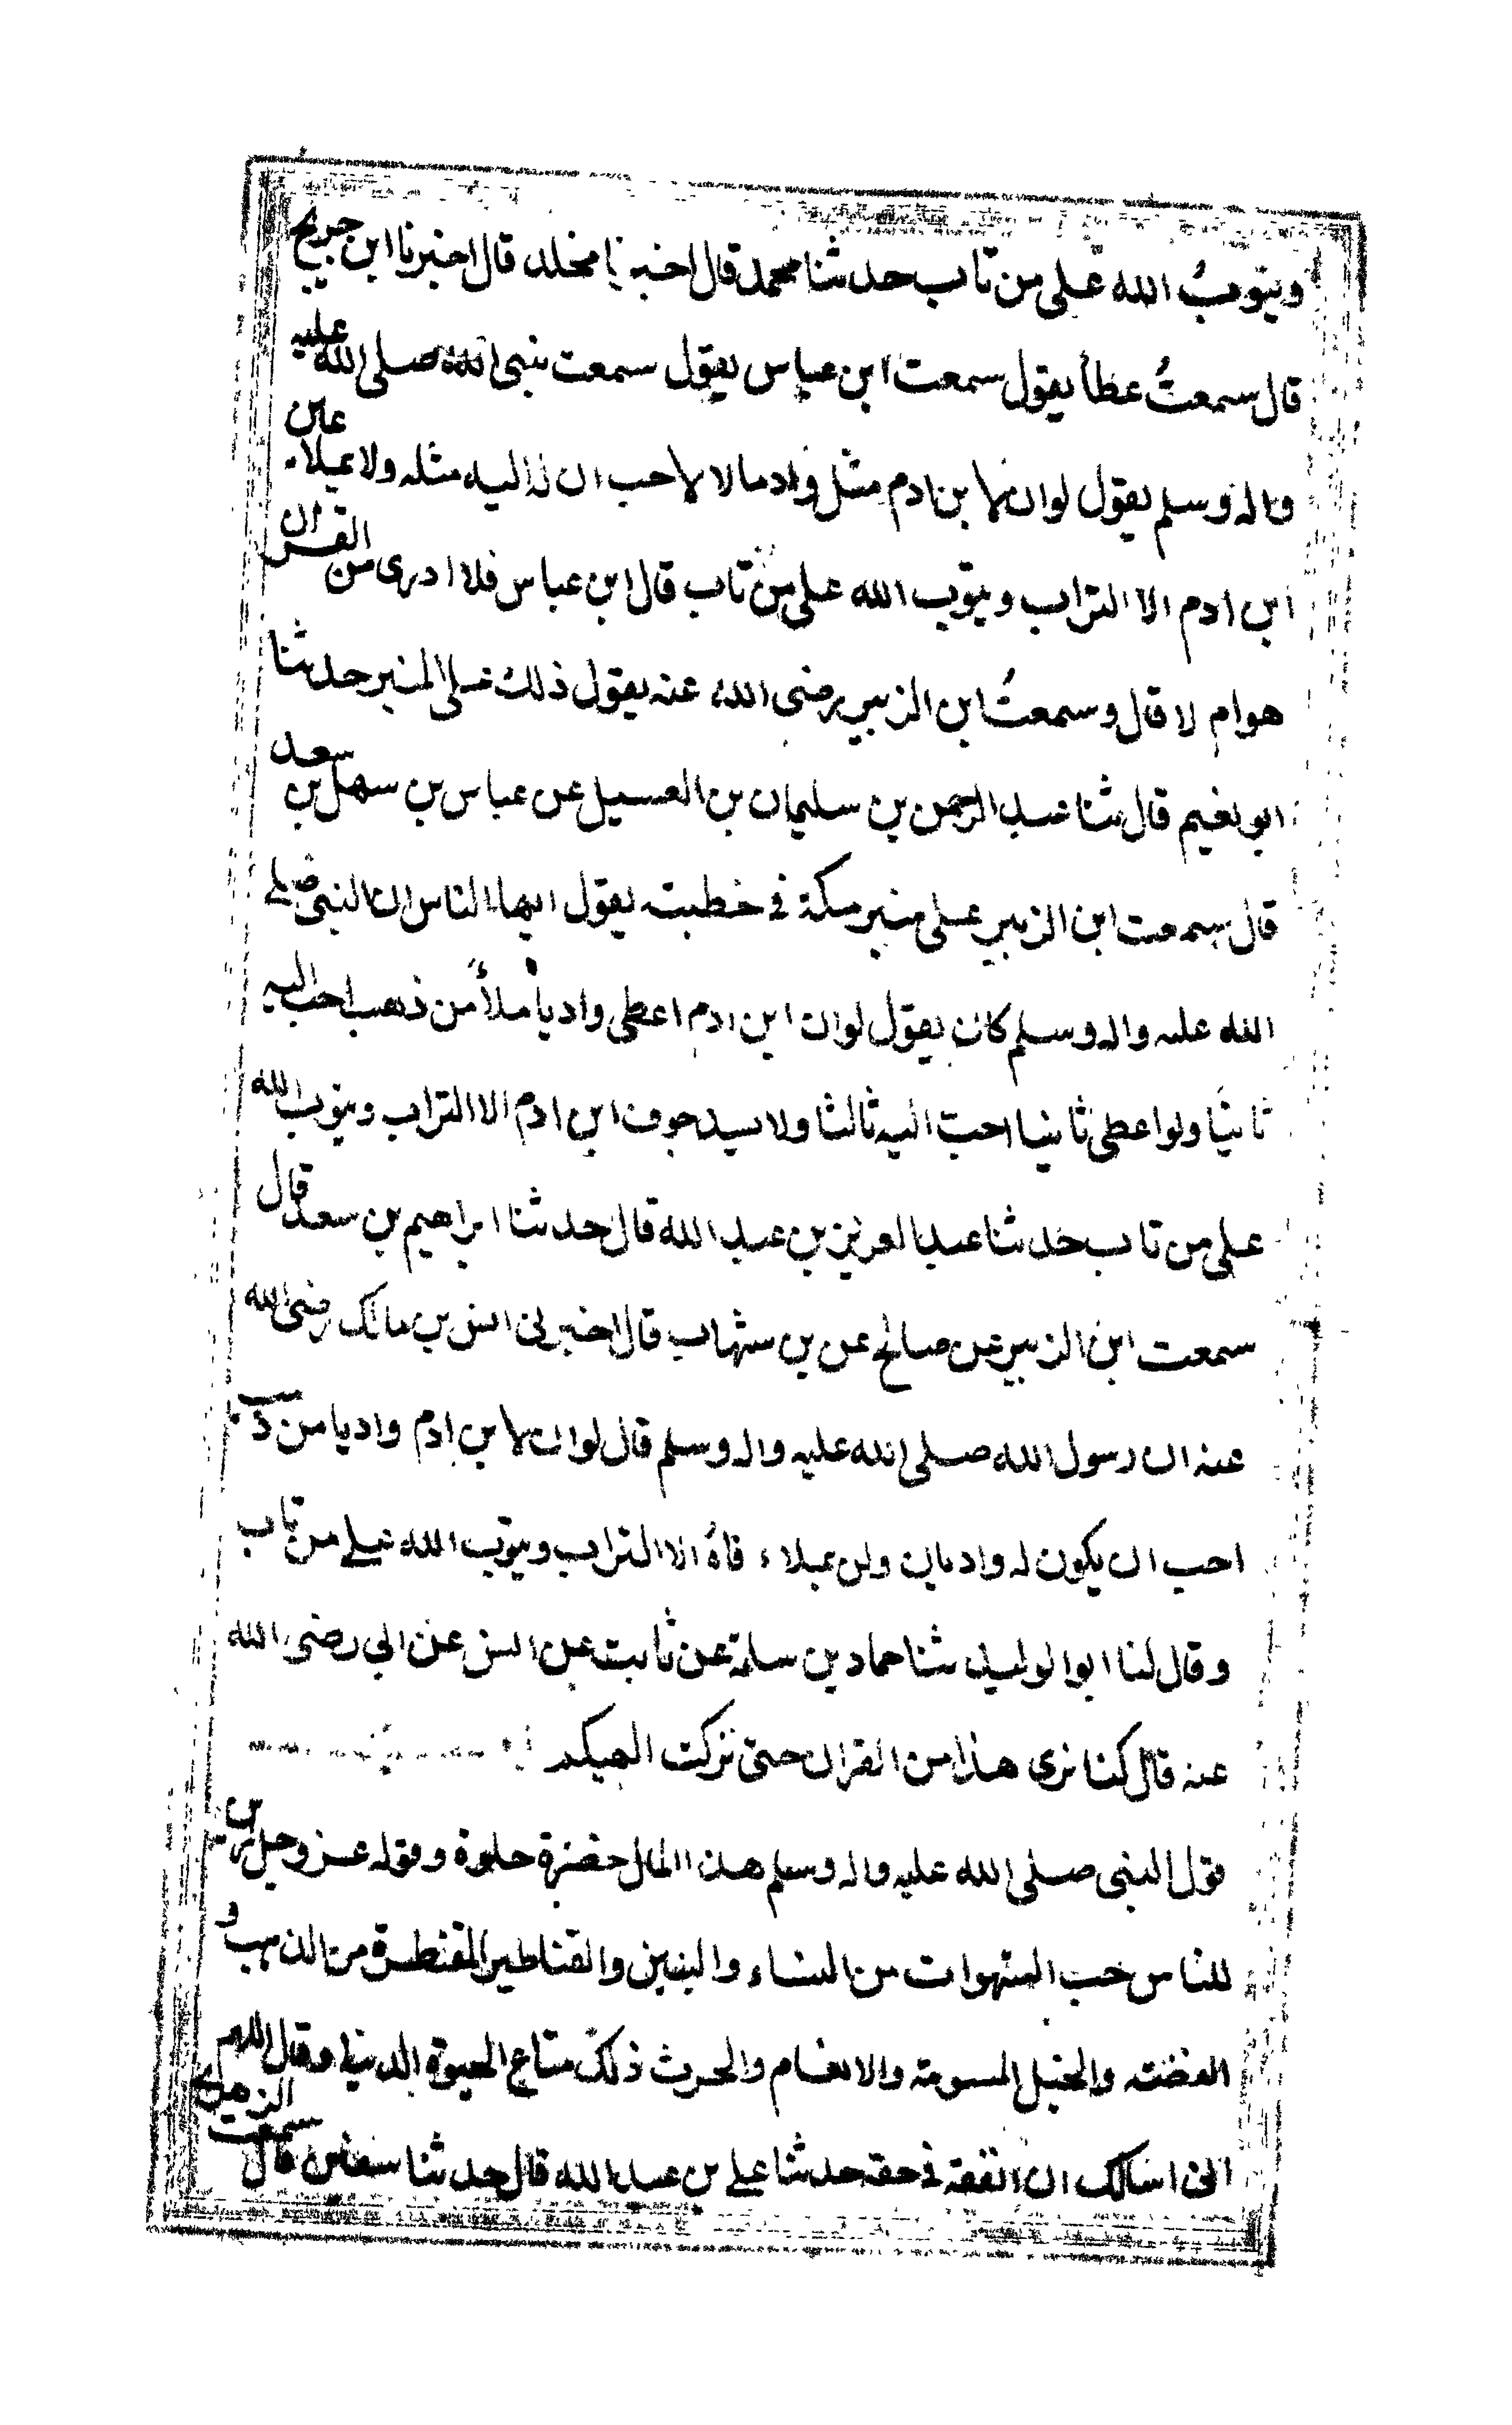 ويتوبُ الله على من تاب حدثنا محمد قال اخبرنا مخلد قال اخبرنا ابن جريج
قال سمعتُ عطأ يقول سمعت ابن عباس يقول سمعت نبى الله صلى الله عليه
واله وسلم يقول لو ان لابن ادم مثل واد مالا لاحب ان له اليه مثله ولا يملاء عين
ابن ادم الا التراب ويتوب الله على من تاب قال ابن عباس فلا ادرى من القران
هو ام لا قال وسمعتُ ابن الزبير رضى الله عنه يقول ذلك على المنبر حدثنا
ابو نعيم قال ثنا عبد الرحمن بن سليمان بن الغسيل عن عباس بن سهل بن سعد
قال سمعت ابن الزبير على منبر مكة فى خطبته يقول ايها الناس ان النبى صلى
الله عليه واله وسلم كان يقول لو ان ابن ادم اعطى واديا ملأ من ذهب احب اليه
ثانيا ولو اعطى ثانيا احب اليه ثالثا ولا يسد جوف ابن ادم الا التراب ويتوب الله
على من تاب حدثنا عبد العزيز بن عبد الله قال حدثنا ابراهيم بن سعد قال
سمعت ابن الزبير عن صالح عن بن شهاب قال اخبرنى انس بن مالك رضى الله
عنه ان رسول الله صلى الله عليه واله وسلم قال لو ان لابن ادم واديا من ذهب
احب ان يكون له واديان ولن يملاء فاهُ الا التراب ويتوب الله على من تاب
وقال لنا ابو الوليد ثنا حماد بن سلمة عن ثابت عن انس عن ابي رضى الله
عنه قال كنا نرى هذا من القران حتى نزكت الهيكم
قول النبى صلى الله عليه واله وسلم هذا المال خضرة حلوة وقوله عز وجل زين
للناس حب الشهوات من النساء والبنين والقناطير المقنطرة من الذهب و
الفضة والخيل المسومة والانعام والحرث ذلك متاع الحيوة الدنيا وقال اللهم
انى اسالك ان انفقه فى حقه حدثنا على بن عبد الله قال حدثنا سفين قال سمعت الزهرى